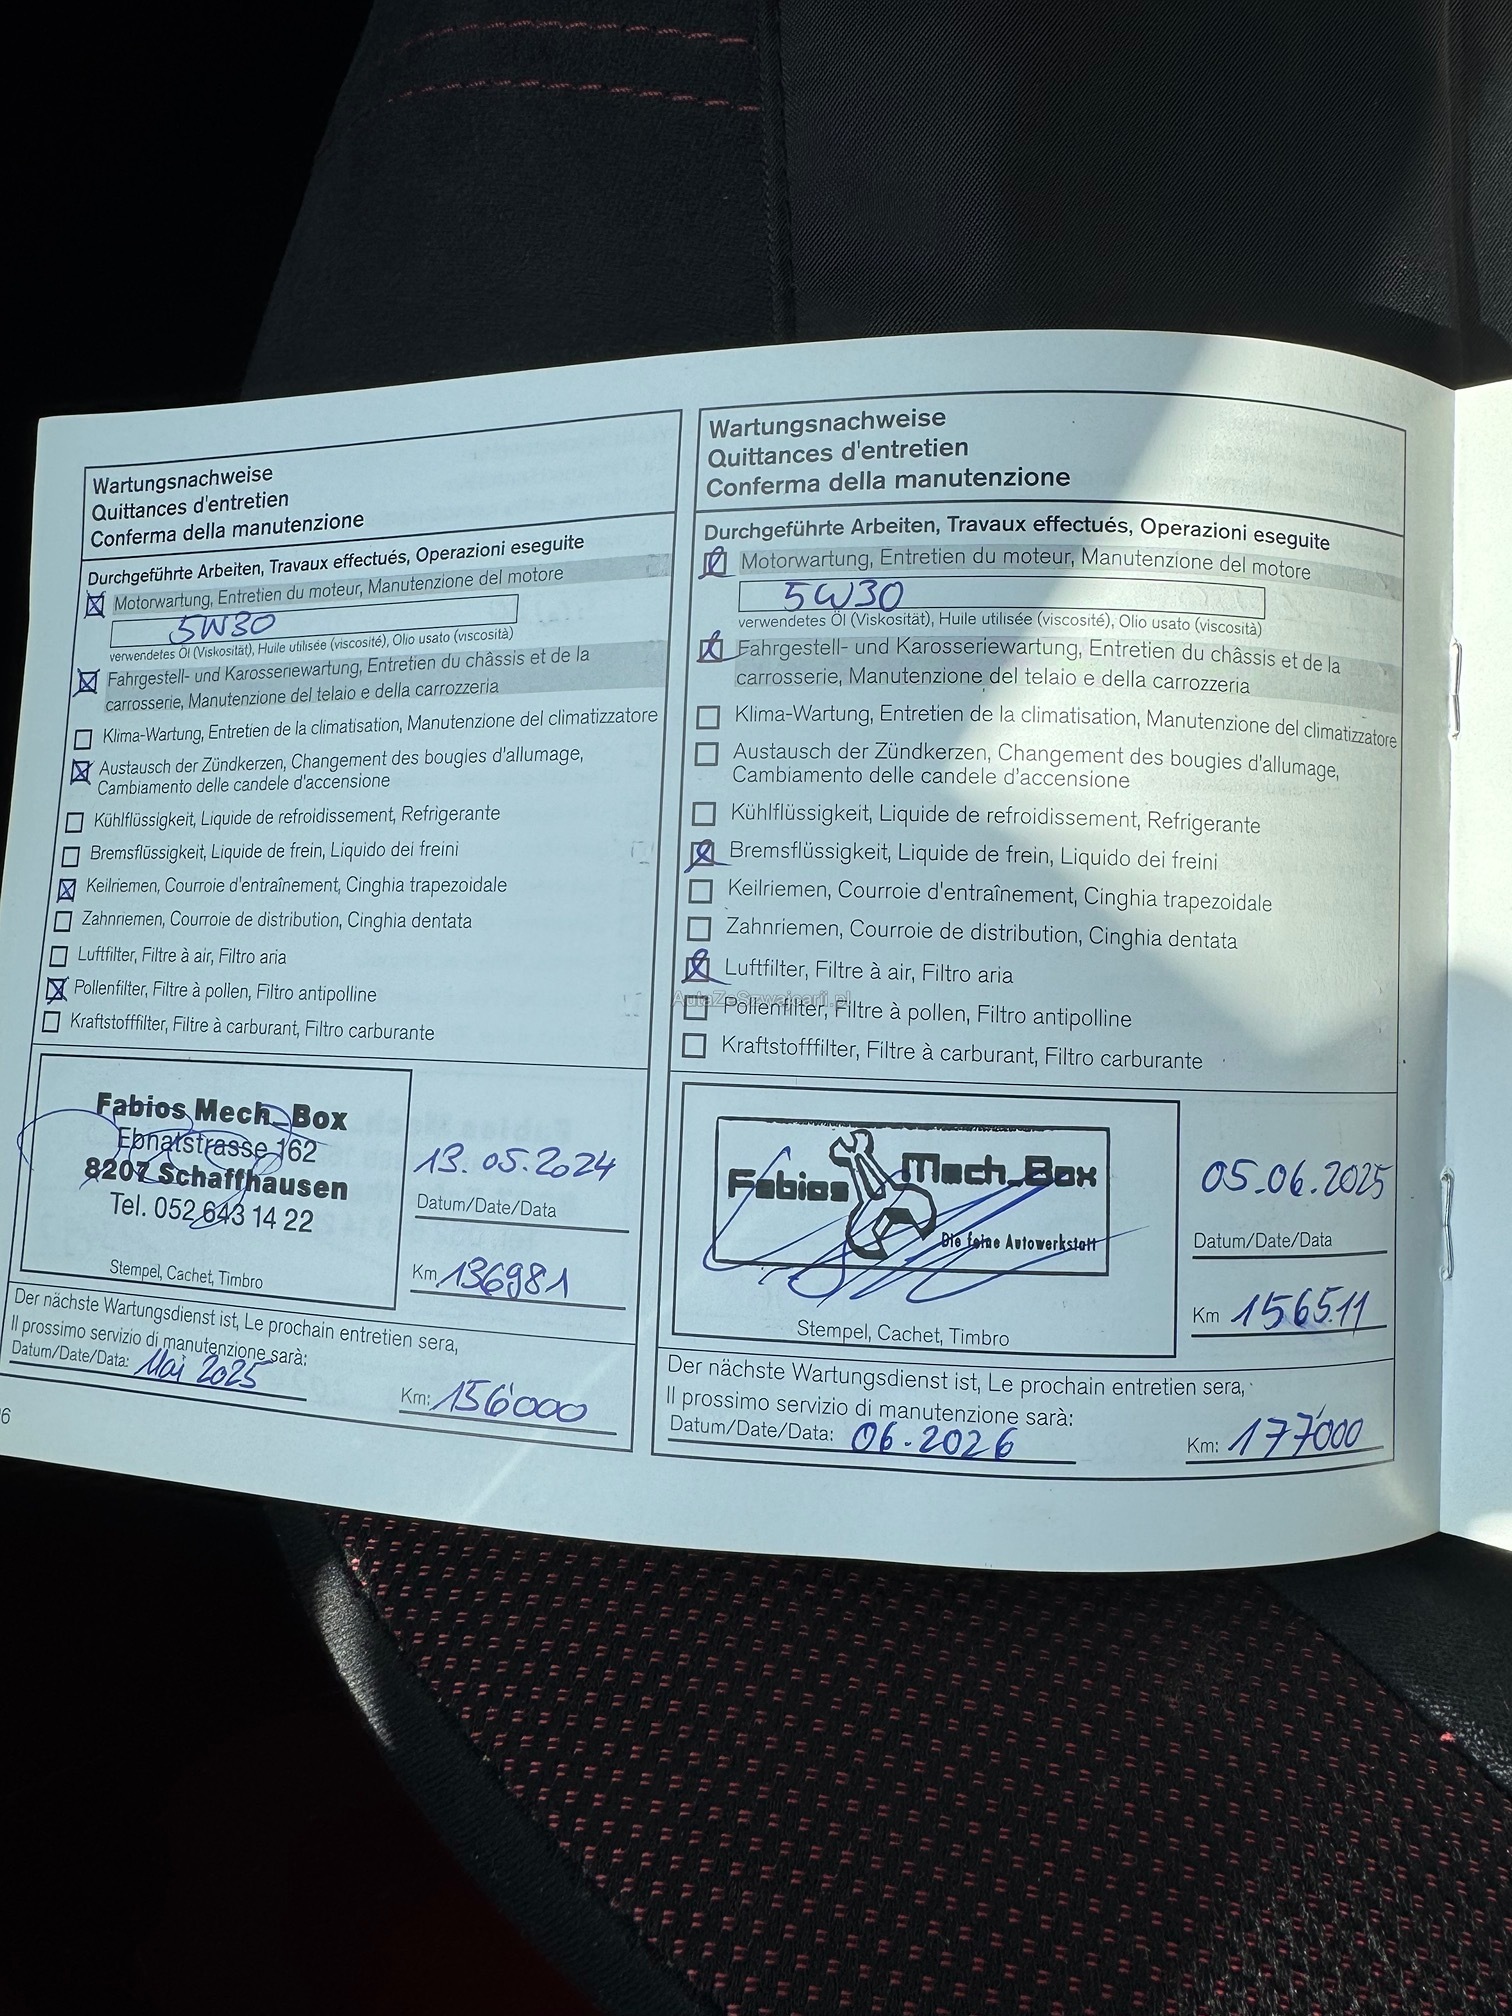 Wartungsnachweise
Quittances d'entretien
Conferma della manutenzione
Durchgeführte Arbeiten, Travaux effectués, Operazioni eseguite
Motorwartung, Entretien du moteur, Manutenzione del motore
5W30
verwendetes Öl (Viskosität), Huile utilisée (viscosité), Olio usato (viscosità)
Fahrgestell- und Karosseriewartung, Entretien du châssis et de la
carrosserie, Manutenzione del telaio e della carrozzeria
Klima-Wartung, Entretien de la climatisation, Manutenzione del climatizzatore
Austausch der Zündkerzen, Changement des bougies d'allumage,
Cambiamento delle candele d'accensione
Kühlflüssigkeit, Liquide de refroidissement, Refrigerante
Bremsflüssigkeit, Liquide de frein, Liquido dei freini
Keilriemen, Courroie d'entraînement, Cinghia trapezoidale
Zahnriemen, Courroie de distribution, Cinghia dentata
Luftfilter, Filtre à air, Filtro aria
Pollenfilter, Filtre à pollen, Filtro antipolline
Kraftstofffilter, Filtre à carburant, Filtro carburante
Fabios Mech_Box
Ebnatstrasse 162
8207 Schaffhausen
Tel. 052 643 14 22
Stempel, Cachet, Timbro
13.05.2024
Datum/Date/Data
Km 136981
Der nächste Wartungsdienst ist, Le prochain entretien sera,
Il prossimo servizio di manutenzione sarà:
Datum/Date/Data: Mai 2025 Km: 156'000
6
Wartungsnachweise
Quittances d'entretien
Conferma della manutenzione
Durchgeführte Arbeiten, Travaux effectués, Operazioni eseguite
Motorwartung, Entretien du moteur, Manutenzione del motore
5W30
verwendetes Öl (Viskosität), Huile utilisée (viscosité), Olio usato (viscosità)
Fahrgestell- und Karosseriewartung, Entretien du châssis et de la
carrosserie, Manutenzione del telaio e della carrozzeria
Klima-Wartung, Entretien de la climatisation, Manutenzione del climatizzatore
Austausch der Zündkerzen, Changement des bougies d'allumage,
Cambiamento delle candele d'accensione
Kühlflüssigkeit, Liquide de refroidissement, Refrigerante
Bremsflüssigkeit, Liquide de frein, Liquido dei freini
Keilriemen, Courroie d'entraînement, Cinghia trapezoidale
Zahnriemen, Courroie de distribution, Cinghia dentata
Luftfilter, Filtre à air, Filtro aria
AutaZeSzwajcarii.pl
Pollenfilter, Filtre à pollen, Filtro antipolline
Kraftstofffilter, Filtre à carburant, Filtro carburante
Fabios Mech_Box
Die feine Autowerkstatt
Stempel, Cachet, Timbro
05.06.2025
Datum/Date/Data
Km 156511
Der nächste Wartungsdienst ist, Le prochain entretien sera,
Il prossimo servizio di manutenzione sarà:
Datum/Date/Data: 06.2026 Km: 177'000